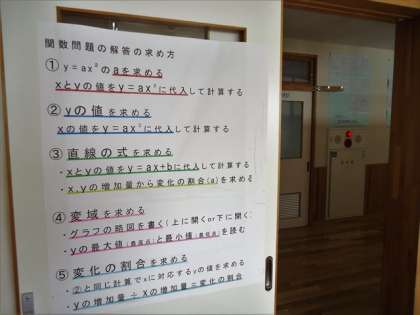 関数問題の解答の求め方
① y=ax²のaを求める
xとyの値をy=ax²に代入して計算する
② yの値を求める
xの値をy=ax²に代入して計算する
③ 直線の式を求める
・xとyの値をy=ax+bに代入して計算する
・x,yの増加量から変化の割合(a)を求める
④ 変域を求める
・グラフの略図を書く(上に開くor下に開く
・yの最大値(最高点)と最小値(最低点)を読む
⑤ 変化の割合を求める
・②と同じ計算でxに対応するyの値を求める
・yの増加量÷xの増加量=変化の割合